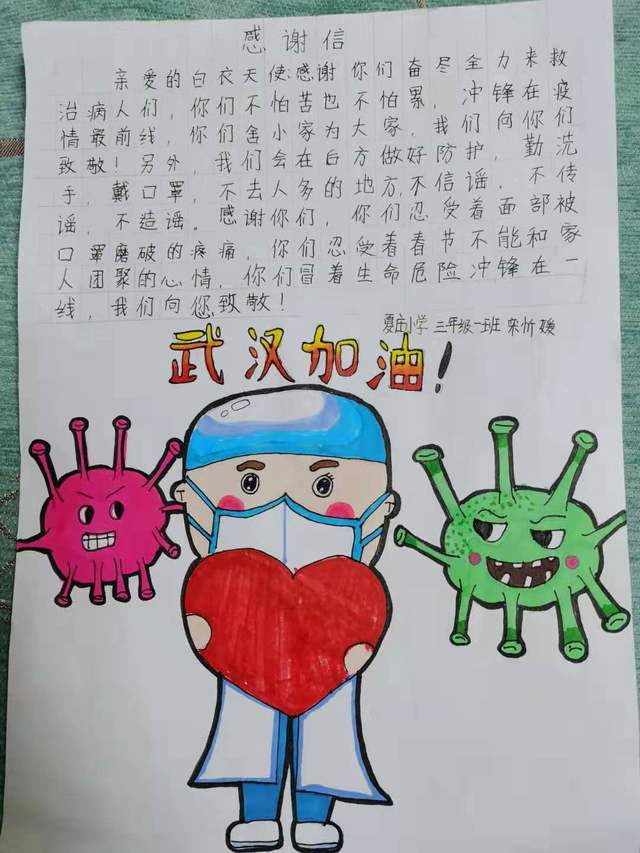 感谢信
亲爱的白衣天使感谢你们奋尽全力来救
治病人们，你们不怕苦也不怕累，冲锋在疫
情最前线，你们舍小家为大家，我们向你们
致敬！另外，我们会在后方做好防护，勤洗
手，戴口罩，不去人多的地方，不信谣，不传
谣，不造谣。感谢你们，你们忍受着面部被
口罩磨破的疼痛，你们忍受着春节不能和家
人团聚的心情，你们冒着生命危险冲锋在一
线，我们向您致敬！
夏庄小学 三年级一班 宋忻媛
武汉加油！